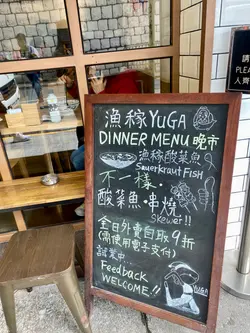 漁稼YUGA
DINNER MENU 晚市
漁稼酸菜魚
Sauerkraut FISH
不一樣.
酸菜魚.串燒!!
Skewer!!
全日外賣自取9折
(需使用電子支付)
試業中...
Feedback
WELCOME!
YUGA
請
PLEA
人齊